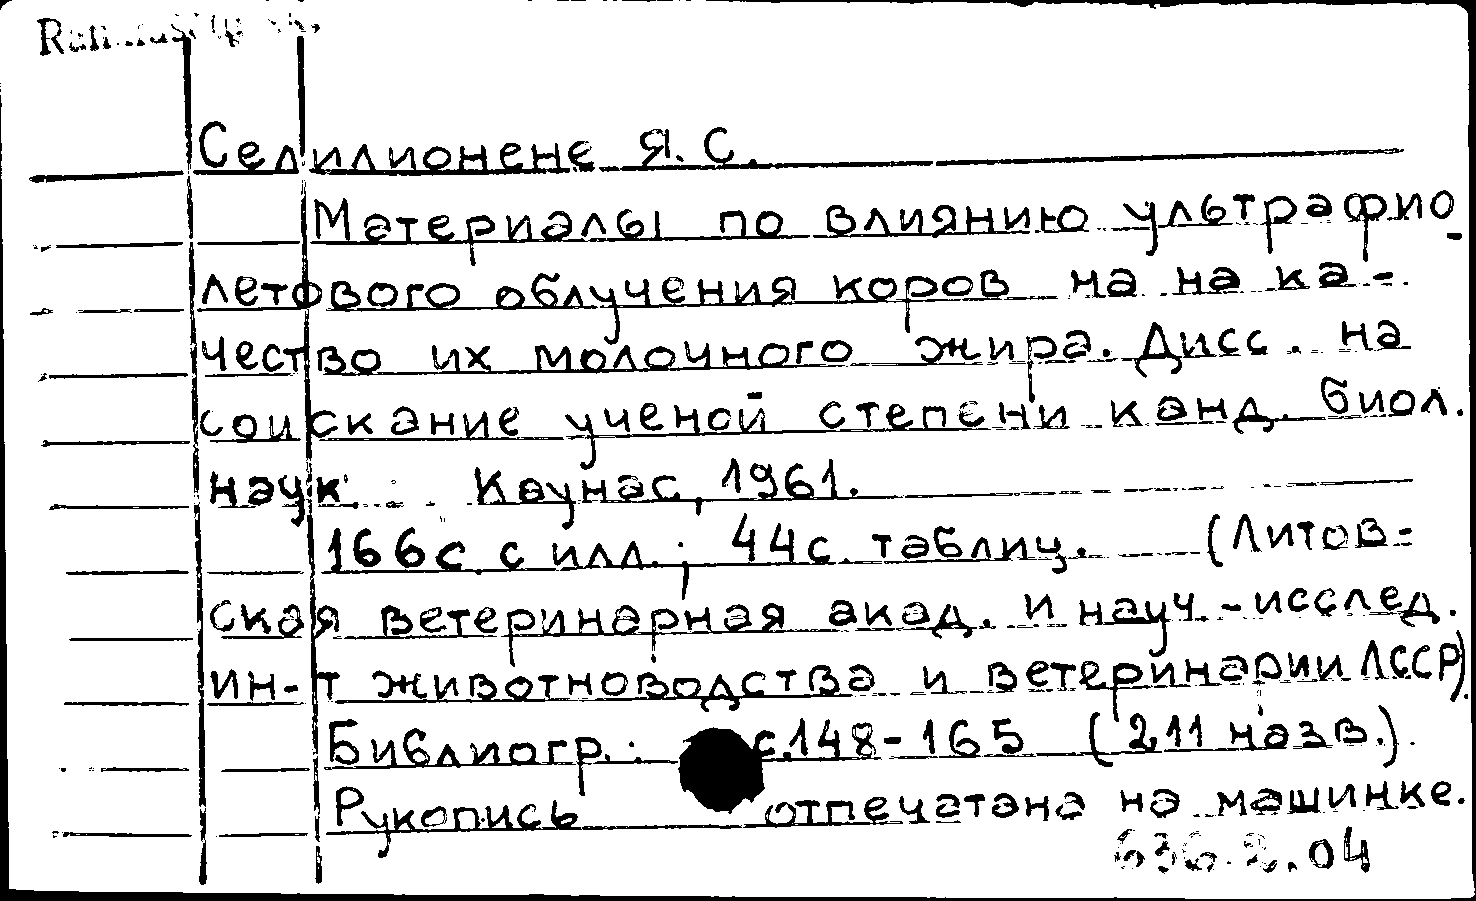 Селилионене Я. С.
Материалы по влиянию ультрафио-
летового облучения коров на на ка-
чество их молочного жира. Дисс. на
соискание ученой степени канд. биол.
наук. Каунас, 1961.
166с. с илл.; 44с. таблиц. (Литов-
ская ветеринарная акад. и науч.-исслед.
ин-т животноводства и ветеринарии ЛССР).
Библиогр.: с.148-165 (211 назв.).
Рукопись отпечатана на машинке.
636.2.04